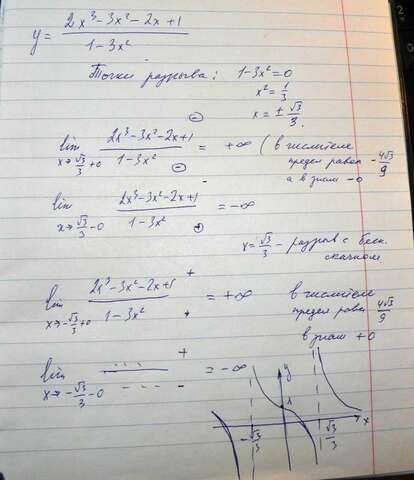 y = (2x³-3x²-2x+1)/(1-3x²)
Точки разрыва: 1-3x²=0
x² = 1/3
x = ± √3/3
lim x→√3/3+0 (2x³-3x²-2x+1)/(1-3x²) = +∞ (в числителе
⊖
⊖
предел равен -4√3/9
а в знам -0
lim x→√3/3-0 (2x³-3x²-2x+1)/(1-3x²) = -∞
-
⊕
x = √3/3 - разрыв с беск.
скачком.
lim x→-√3/3+0 (2x³-3x²-2x+1)/(1-3x²) = +∞ в числителе
+
+
предел равен 4√3/9
в знам +0
lim x→-√3/3-0 ··· / --- = -∞
+
-
y
1
x
-√3/3
√3/3